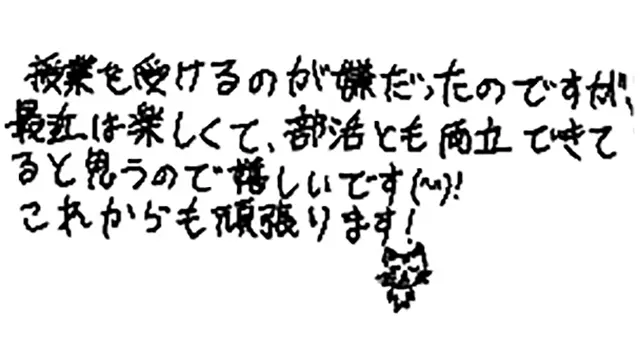 授業を受けるのが嫌だったのですが、
最近は楽しくて、部活とも両立できて
ると思うので嬉しいです(^^)!
これからも頑張ります!